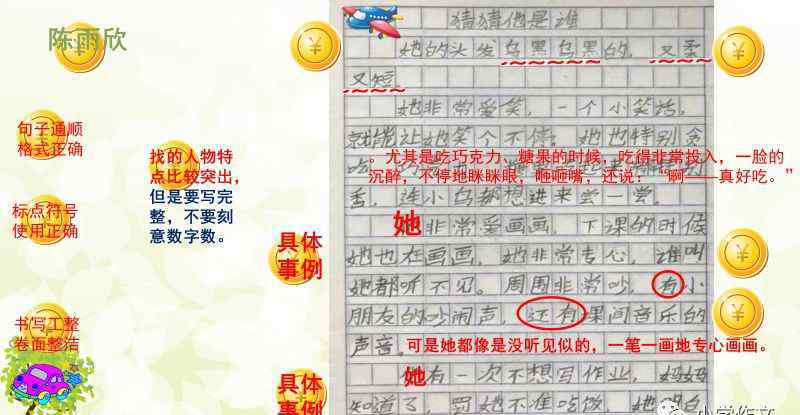 陈雨欣
猜猜他是谁
她的头发乌黑乌黑的，又柔
又短。
她非常爱笑，一个小笑话，
就能让她笑个不停。她也特别会
吃
。尤其是吃巧克力、糖果的时候，吃得非常投入，一脸的
沉醉，不停地眯眯眼，咂咂嘴，还说：“啊——真好吃。”
香，连小鸟都想进来尝一尝。
她
非常爱画画，下课的时候
她也在画画，她非常专心，谁叫
她都听不见。周围非常吵，有小
朋友的吵闹声，还有课间音乐的
声音。
可是她都像是没听见似的，一笔一画地专心画画。
她
有一次不想写作业，妈妈
知道了，罚她不准吃饭，她
句子通顺
格式正确
标点符号
使用正确
书写工整
卷面整洁
找的人物特
点比较突出，
但是要写完
整，不要刻
意数字数。
具体
事例
具体
事例
小学作文